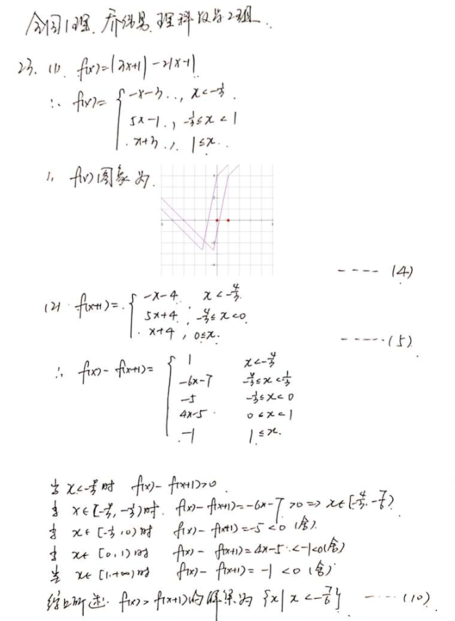 全国1理. 乔纬易. 理科数学2班.
23. (1). f(x)=|3x+1|-2|x-1|
∴ f(x)= { -x-3 , x<-1/3 .
5x-1 , -1/3≤x<1
x+3 , 1≤x .
∴ f(x)图象为.
---- (4)
(2) f(x+1)= { -x-4 x<-4/3
5x+4 , -4/3≤x<0
x+4 , 0≤x. ----- (5)
∴ f(x)-f(x+1)= { 1 x<-4/3
-6x-7 -4/3≤x<-1/3
-5 -1/3≤x<0
4x-5 0≤x<1
-1 1≤x.
当 x<-4/3 时 f(x)-f(x+1)>0
当 x∈[-4/3, -1/3)时. f(x)-f(x+1)=-6x-7>0 => x∈[-4/3, -7/6)
当 x∈[-1/3, 0)时 f(x)-f(x+1)=-5<0 (舍)
当 x∈[0,1)时 f(x)-f(x+1)=4x-5<-1<0(舍)
当 x∈[1,+∞)时 f(x)-f(x+1)=-1<0 (舍)
综上所述. f(x)>f(x+1)的解集为 {x|x<-7/6} ---- (10)